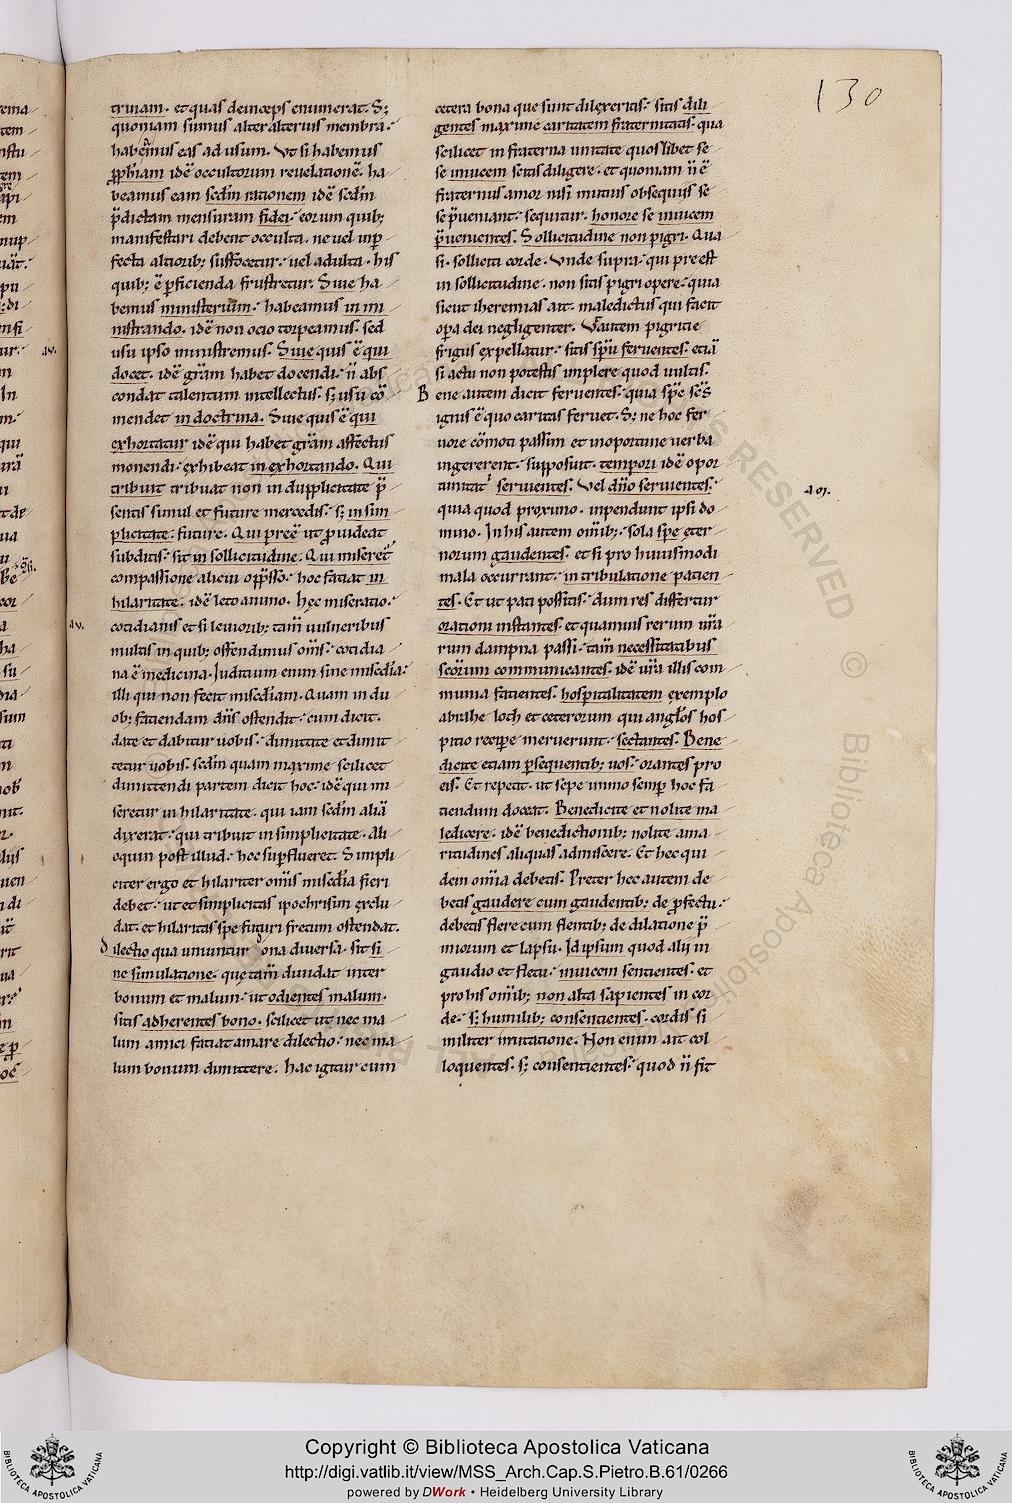 130
trinam. et quas deinceps enumerat. S;
quoniam sumus alter alterius membra.
habemus eas ad usum. Vt si habemus
ꝓph̄iam idē occultorum reuelationē. ha
beamus eam secd̄m rationem idē secd̄m
p̄dictam mensuram fidei. eorum quib;
manifestari debent occulta. ne uel inꝑ
fecta altiorib; suffocetur. uel adulta. his
quib; ē ꝑficienda frustretur. Siue ha
bemus ministerium. habeamus in mi
nistrando. idē non ocio torpeamus. sed
usu ipso ministremus. Siue quis ē qui
docet. idē gr̄am habet docendi. n̄ abs
condat talentum intellectus. s; usu cō
mendet in doctrina. Siue quis ē qui
exhortatur idē qui habet gr̄am affectus
monendi. exhibeat in exhortando. Qui
tribuit tribuat non in dupplicitate p̄
sentis simul et future mercedis. s; in sim
plicitate. future. Qui preē ut ꝓuideat
subditis. sit in sollicitudine. Qui miseret᷑
compassione alicui opp̄sso. hoc faciat in
hilaritate. idē leto animo. hęc miseratio.
cotidianis et si leuiorib; tam̄ uulneribus
multis in quib; offendimus om̄s. cotidia
na ē medicina. Iuditium enim sine misedīa.
illi qui non fecit misedīam. Quam in du
ob; faciendam dn̄s ostendit. cum dicit.
date et dabitur uobis. dimittite et dimit
tetur uobis. secd̄m quam maxime scilicet
dimittendi partem dicit hoc. idē qui mi
seretur in hilaritate. qui iam secd̄m aliā
dixerat. qui tribuit in simplicitate. ali
oquin post illud. hoc suꝑflueret. Simpli
citer ergo et hilariter om̄is misedīa fieri
debet. ut et simplicitas ipochrisim exclu
dat. et hilaritas spe futuri fretum ostendat.
dilectio qua uniuntur dona diuersa. sit si
ne simulatione. que tam̄ diuidat inter
bonum et malum. ut odientes malum.
sitis adherentes bono. scilicet ut nec ma
lum amici faciat amare dilectio. nec ma
lum bonum dimittere. hac igitur cum
cetera bona que sunt dilexeritis. sitis dili
gentes maxime caritatem fraternitatis. qua
scilicet in fraterna unitate quoslibet se
se inuicem scitis diligere. et quoniam n̄ ē
fraternus amor nisi mutuis obsequiis se
se p̄ueniant. sequitur. honore se inuicem
p̄uenientes. Sollicitudine non pigri. Qua
si. solliciti corde. Vnde supra. qui preest
in sollicitudine. non sitis pigri opere. quia
sicut iheremias ait. maledictus qui facit
oꝑa dei negligenter. Vt autem pigritie
frigus expellatur. sitis sp̄u feruentes. etiā
si actu non potestis implere quod uultis.
Bene autem dicit feruentes. quia sp̄c sc̄s
ignis ē quo caritas feruet. S; ne hoc fer
uore cōmoti passim et inoportune uerba
ingererent. supposuit. tempori idē opor
tunitati seruientes. Vel dn̄o seruientes.
quia quod proximo. inpendunt ipsi do
mino. In his autem om̄ib; sola spe eter
norum gaudentes. et si pro huiusmodi
mala occurrant. in tribulatione patien
tes. Et ut pati possitis. dum res differtur
orationi instantes. et quamuis rerum ur̄a
rum dampna passi. tam̄ necessitatibus
sc̄orum communicantes. idē ur̄a illis com
munia facientes. hospitalitatem exemplo
abrahe loth et ceterorum qui angl̄os hos
pitio reciꝑe meruerunt. sectantes. Bene
dicite etiam ꝑsequentib; uos. orantes pro
eis. Et repetit. ut sepe immo semꝑ hoc fa
ciendum doceat. Benedicite et nolite ma
ledicere. idē benedictionib; nolite ama
ritudines aliquas admiscere. Et hec qui
dem om̄ia debetis. Preter hec autem de
betis gaudere cum gaudentib; de ꝓfectu.
debetis flere cum flentib; de dilatione p̄
miorum et lapsu. Id ipsum quod alii in
gaudio et fletu. inuicem sentientes. et
pro his om̄ib; non alta sapientes in cor
de. s; humilib; consentientes. cordis si
militer imitatione. Non enim ait col
loquentes. s; consentientes. quod n̄ fit
Copyright © Biblioteca Apostolica Vaticana
http://digi.vatlib.it/view/MSS_Arch.Cap.S.Pietro.B.61/0266
powered by DWork • Heidelberg University Library
BIBLIOTECA APOSTOLICA VATICANA
BIBLIOTECA APOSTOLICA VATICANA